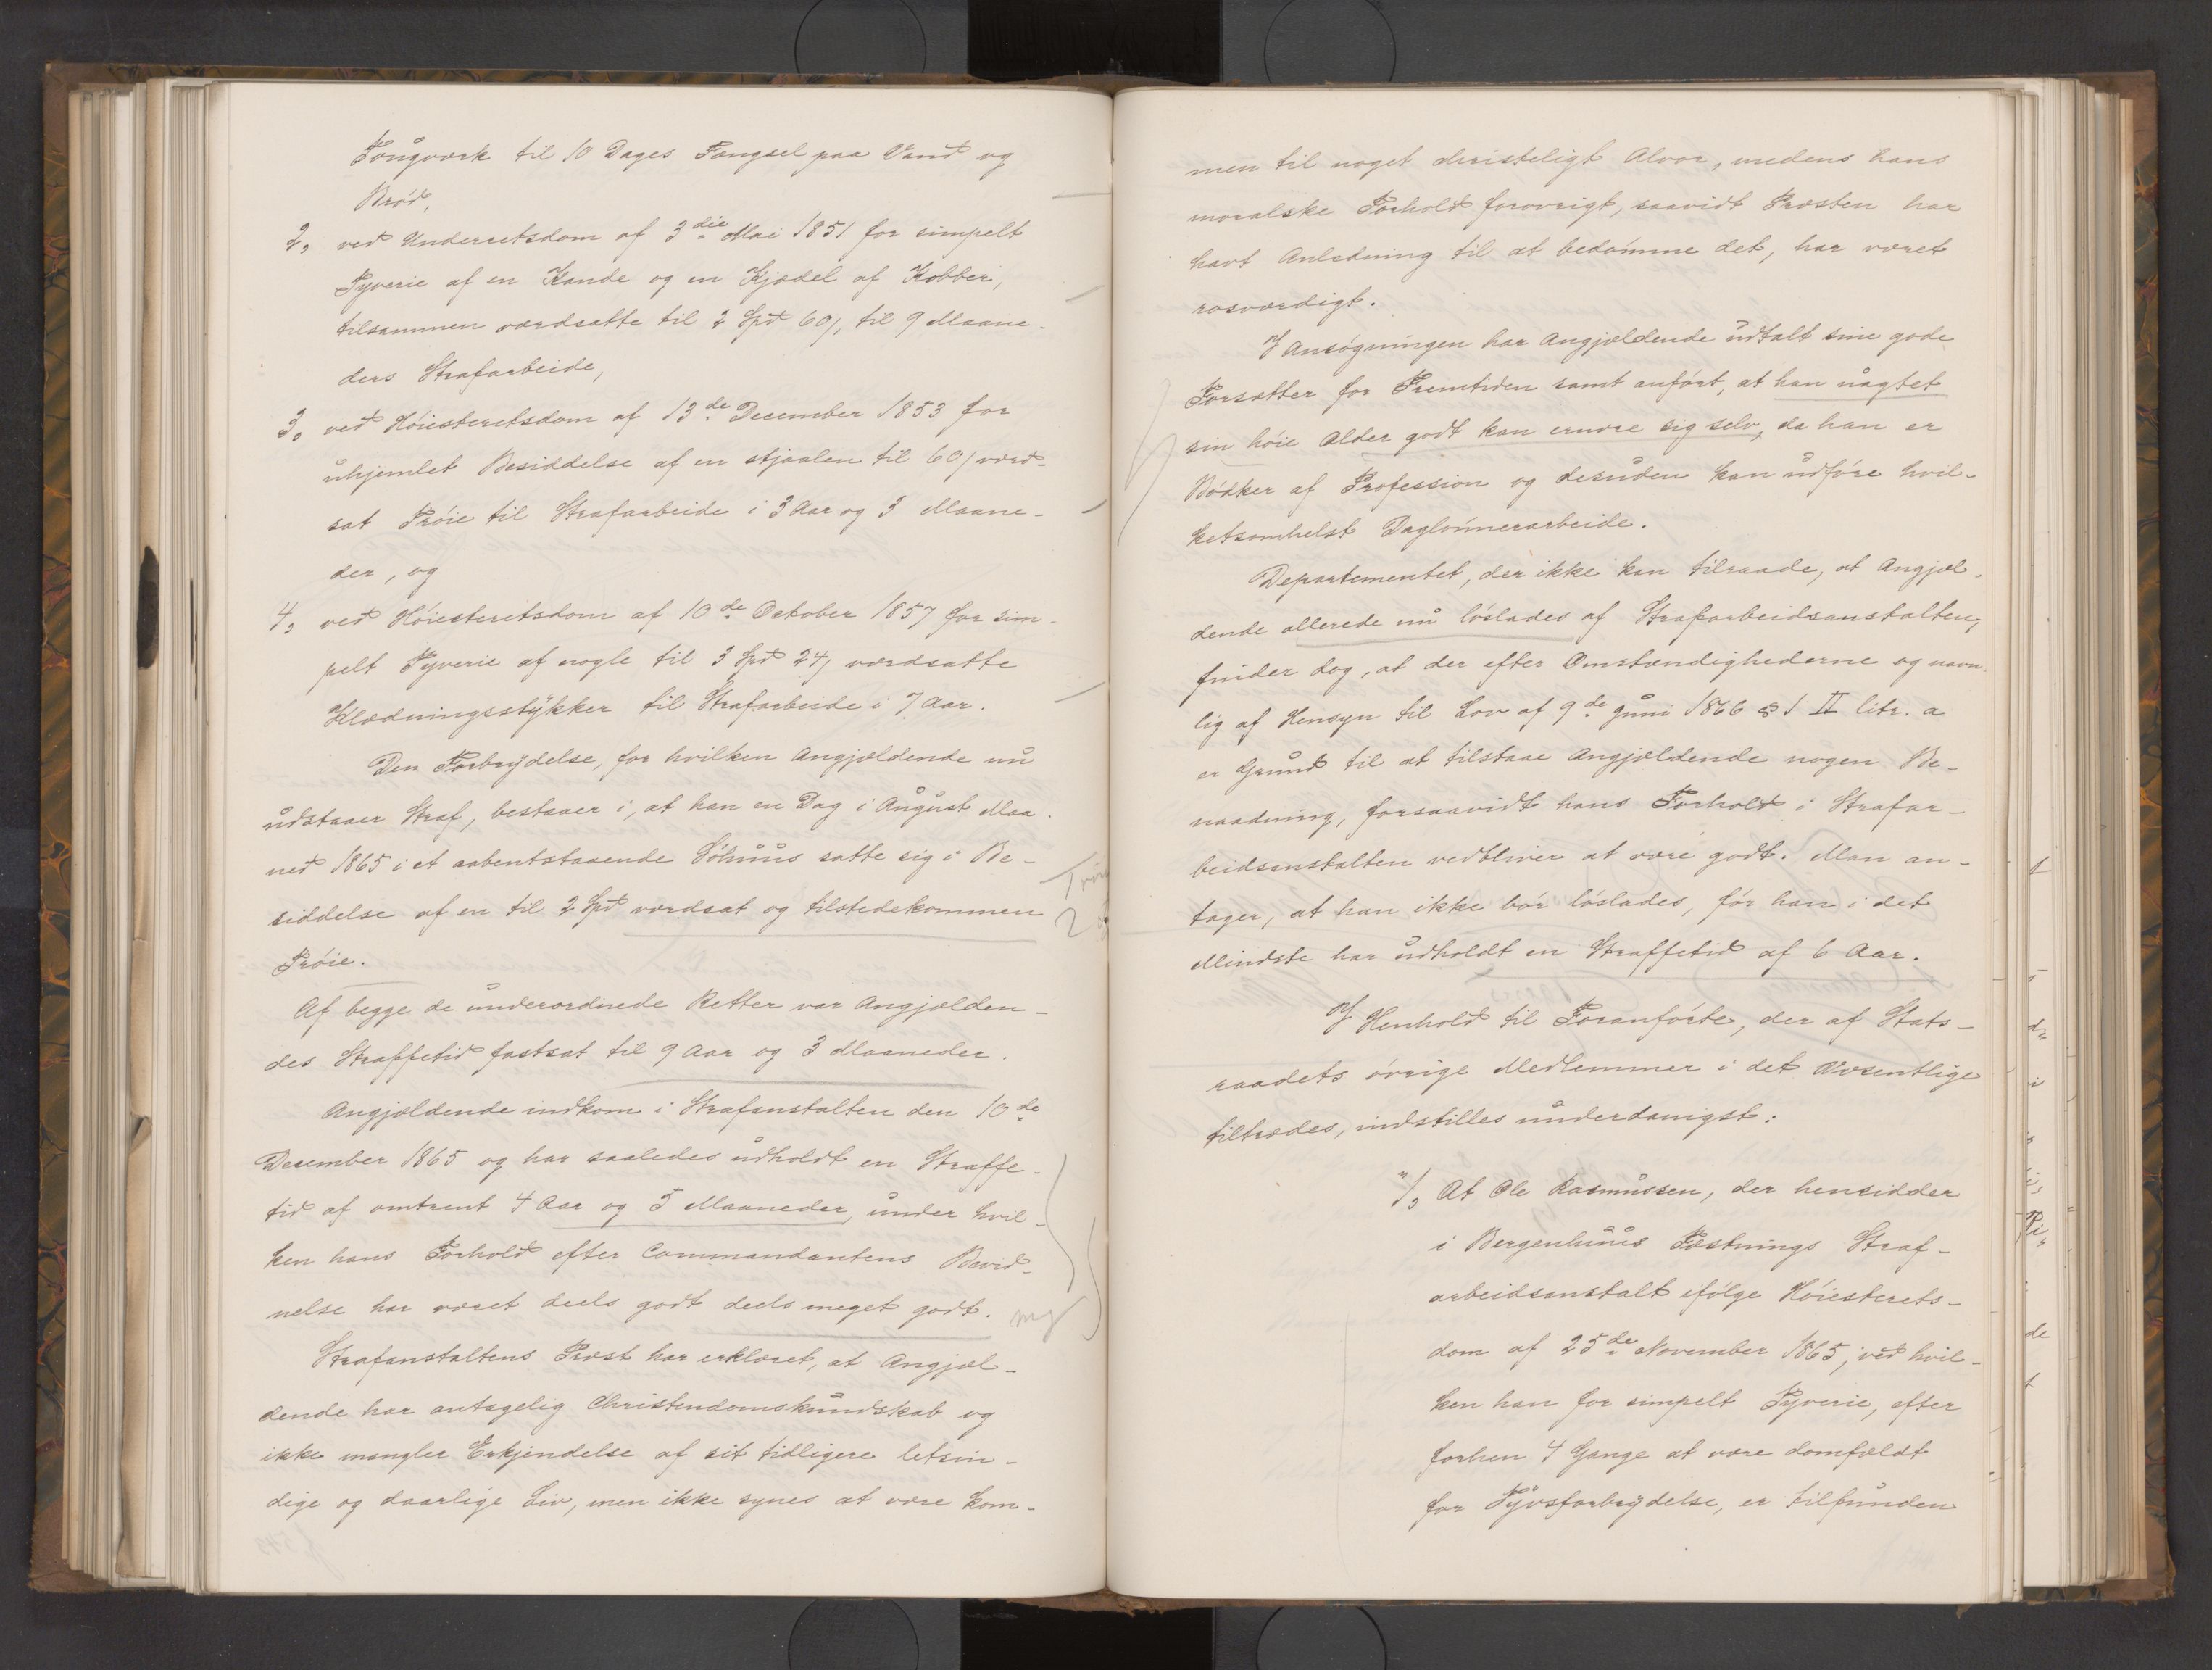 Tougværk til 10 Dages Fængsel paa Vand og
Brød,
2, ved Underretsdom af 3die Mai 1851 for simpelt
Tyverie af en Kande og en Kjædel af Kobber,
tilsammen værdsatte til 2 Spd 60/, til 9 Maane-
ders Strafarbeide,
3, ved Høiesteretsdom af 13de December 1853 for
uhjemlet Besiddelse af en stjaalen til 60/ værd-
sat Trøie til Strafarbeide i 3 Aar og 3 Maane-
der, og
4, ved Høiesteretsdom af 10de October 1857 for sim-
pelt Tyverie af nogle til 3 Spd 24/ værdsatte
Klædningsstykker til Strafarbeide i 7 Aar.
Den Forbrydelse, for hvilken Angjældende nu
udstaaer Straf, bestaaer i, at han en Dag i August Maa-
ned 1865 i et aabentstaaende Søhuus satte sig i Be-
siddelse af en til 2 Spd værdsat og tilstedekommen
Trøie.
Af begge de underordnede Retter var Angjælden-
des Straffetid fastsat til 9 Aar og 3 Maaneder.
Angjældende indkom i Strafanstalten den 10de
December 1865 og har saaledes udholdt en Straffe-
tid af omtrent 4 Aar og 5 Maaneder, under hvil-
ken hans Forhold efter Commandantens Bevid-
nelse har været deels godt deels meget godt.
mg
Strafanstaltens Præst har erklæret, at Angjæl-
dende har antagelig Christendomskundskab og
ikke mangler Erkjendelse af sit tidligere letsin-
dige og daarlige Liv, men ikke synes at være kom-
men til noget christeligt Alvor, medens hans
moralske Forhold forøvrigt, saavidt Præsten har
havt Anledning til at bedømme det, har været
rosværdigt.
I Ansøgningen har Angjældende udtalt sine gode
Forsætter for Fremtiden samt anført, at han uagtet
sin høie Alder godt kan ernære sig selv, da han er
Bødker af Profession og desuden kan udføre hvil-
ketsomhelst Daglønnerarbeide.
Departementet, der ikke kan tilraade, at Angjæl-
dende allerede nu løslades af Strafarbeidsanstalten,
finder dog, at der efter Omstændighederne og navn-
lig af Hensyn til Lov af 9de Juni 1866 § 1 II litr. a
er Grund til at tilstaae Angjældende nogen Be-
naadning, forsaavidt hans Forhold i Strafar-
beidsanstalten vedbliver at være godt. Man an-
tager, at han ikke bør løslades, før han i det
Mindste har udholdt en Straffetid af 6 Aar.
I Henhold til Foranførte, der af Stats-
raadets øvrige Medlemmer i det Væsentlige
tiltrædes, indstilles underdanigst:
"/, At Ole Rasmussen, der hensidder
i Bergenhuus Fæstnings Straf-
arbeidsanstalt ifølge Høiesterets-
dom af 25de November 1865, ved hvil-
ken han for simpelt Tyverie, efter
forhen 4 Gange at være domfældt
for Tyvsforbrydelse, er tilfunden